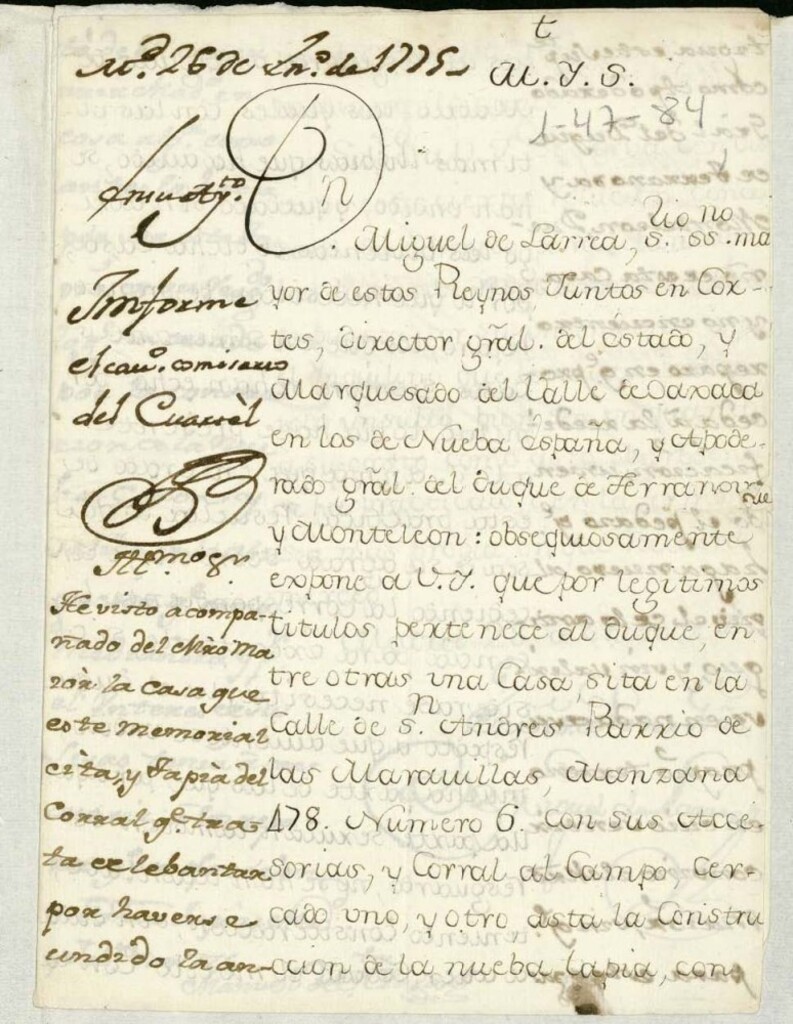 M.d 26 de En.º de 1775
t
M. Y. S.
1-47-84
En su Ay.to
Informe
el cav.º comisario
del Cuartèl
He visto acompa-
ñado del Mrò Ma
ior la casa que
este memorial
cita, y tapia del
Corral q.e tra-
ta de lebantar
por haverse
undido la an-
D.n Miguel de Larrea, s.rio s.no ma
yor de estos Reynos Juntos en Cor-
tes, director grãl. del estado, y
Marquesado del Valle de Oaxaca
en los de Nueba españa, y Apode-
rado grãl. del Duque de Terranova
y Monteleon: obsequiosamente
expone a V.Y. que por legitimos
titulos pertenece al Duque, en
tre otras una Casa, sita en la
Calle de S.n Andres Barrio de
las Marauillas, Manzana
478. Número 6. con sus Acce-
sorias, y Corral al Campo, Cer-
cado uno, y otro asta la Constru
ccion de la nueba tapia, con